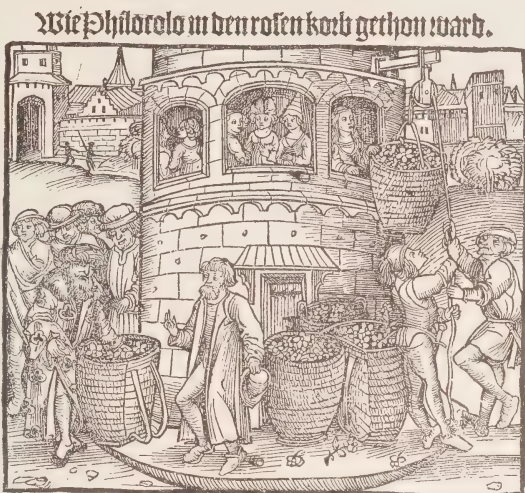 Wie Philocolo in den rosen korb gethon ward.